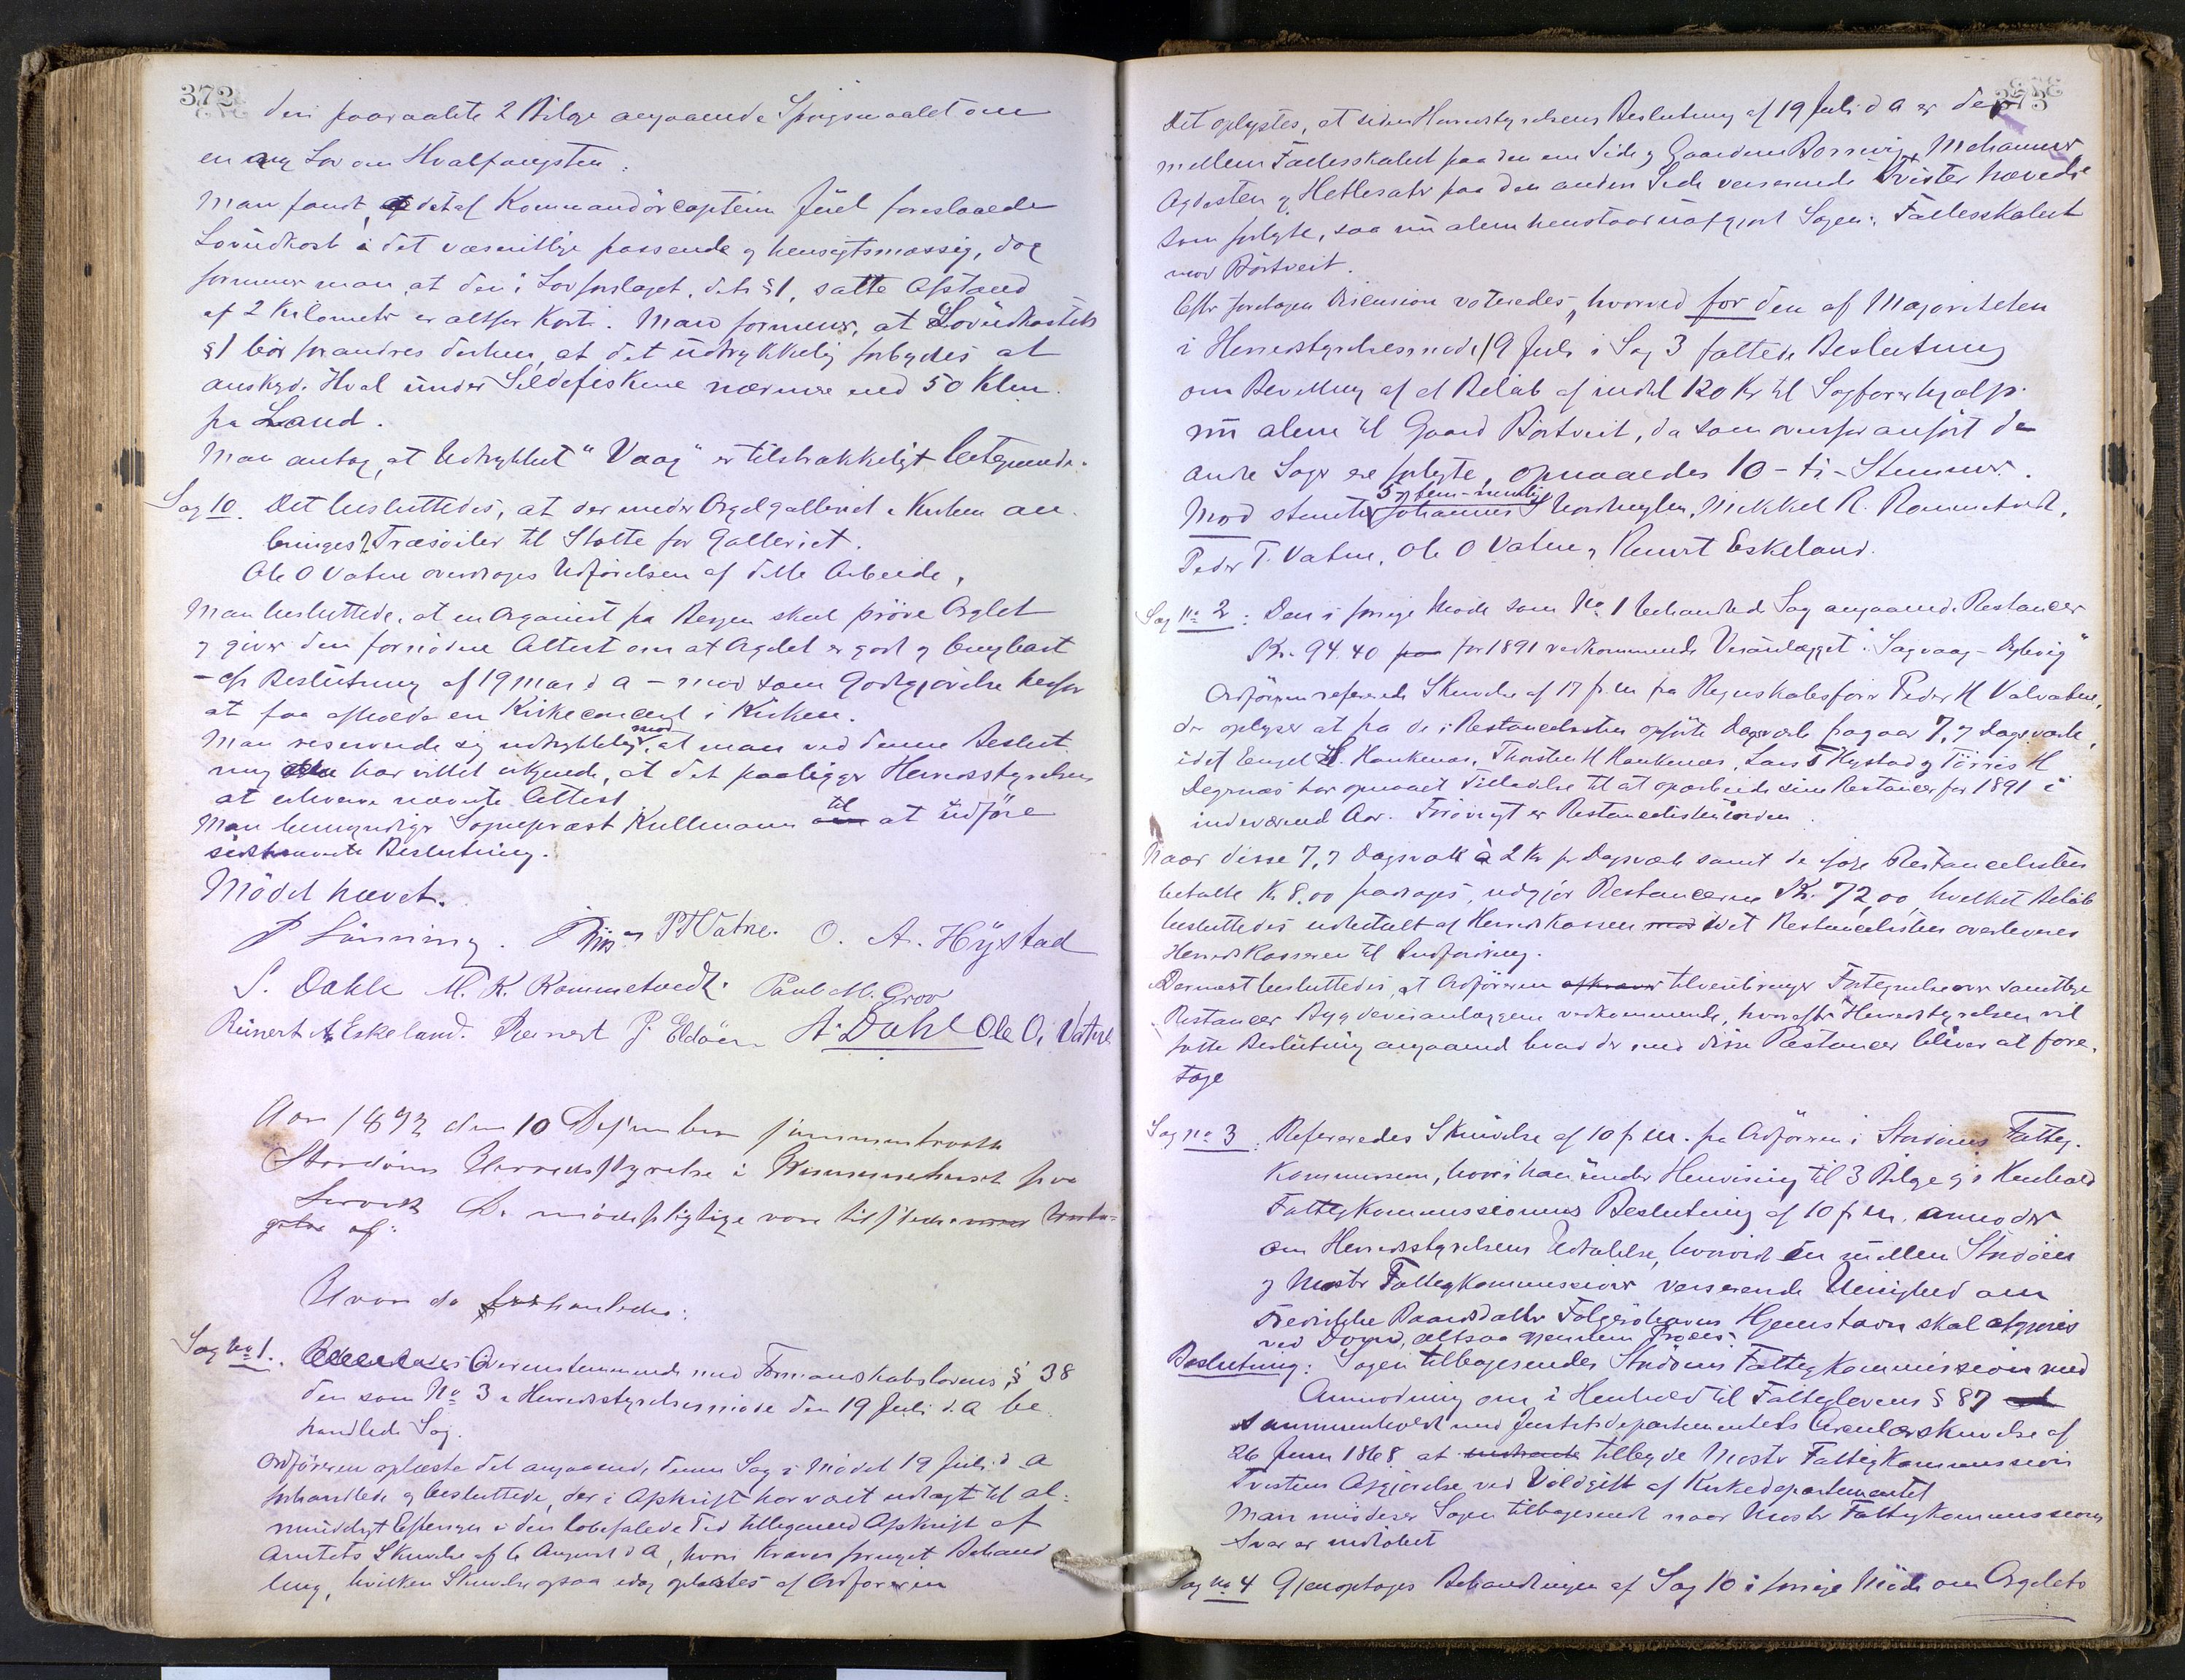 372
den paaraabte 2 Bilage angaaende Spørgsmaalet om
en ny Lov om Hvalfangsten:
Man fandt, det af Kommandörcaptein Juel foreslaaede
Lovudkast i det væsentlige passende og hensigtsmæssig, dog
formener man, at den i Lovforslaget, dets § 1, satte Afstand
af 2 Kilometer er altfor kort. Man formener, at Lovudkastets
§ 1 bör forandres derhen, at det udtrykkelig forbydes at
anskyde Hval under Sildefiskene nærmere end 50 Klm.
fra Land.
Man antog, at Udtrykket "Vaag" er tilstrækkeligt betegnende.
Sag 10. Det besluttedes, at der under Orgelgalleriet i Kirken an-
bringes 2 Træsöiler til Stötte for Galleriet.
Ole O Vatne overdrages Udförelsen af dette Arbeide.
Man besluttede, at en Organist fra Bergen skal pröve Orglet
og giver den fornödne Attest om at Orgelet er godt og brugbart
- efr Beslutning af 19 Mars d A - mod som Godtgjörelse herfor
at faa afholde en Kirkeconcert i Kirken.
Man reserverede sig udtrykkelig mod, at man ved denne Beslut-
ning har villet erkjende, at det paaligger Herredsstyrelsen
at erhverve nævnte Attest
Man bemyndiger Sognepræst Kullmann til at udföre
sidstnævnte Beslutning.
Mödet hævet.
P Lönning. PTVatne. O. A. Hÿstad
S. Dahle M. K. Rommetvedt. Paul M. Grov
Reinert A. Eskeland. Reinert P. Eldöen A. Dahl Ole O. Vatne
Aar 1892 den 10 Desember sammentraadte
Stordöens Herredsstyrelse i Kommunehuset paa
Lervik De mödepligtige vare tilstede
af:
Hvor da forhandledes:
Sag No 1. Overenstemmende med Formandskabslovens § 38
den som No 3 i Herredsstyrelsesmöde den 19 Juli d. A be-
handlede Sag.
Ordföreren oplæste det angaaende denne Sag i Mödet 19 Juli d A
forhandlede og besluttede, der i Afskrift har været udlagt til al-
mindeligt Eftersyn i den lovbefalede Tid tilligemed Afskrift af
Amtets Skrivelse af 6 August d A, hvori kræves fornyet Behand-
ling, hvilken Skrivelse ogsaa idag oplæstes af Ordföreren
373
Det oplystes, at siden Herredsstyrelsens Beslutning af 19 Juli d A er de
mellem Fællesskabet paa den ene Side og Gaardene Börnvig, Mehammer
Agdesten og Hetlesæter paa den anden Side verserende Tvister hævede
som forligte, saa nu alene henstaar uafgjort Sagen: Fællesskabet
mod Börtveit.
Efter foretagen Discussion voteredes, hvorved for den af Majoriteten
i Herredsstyrelsesmöde 19 Juli i Sag 3 fattede Beslutning
om Bevilling af et Belöb af indtil 120 Kr til Sagförerhjælp
nu alene til Gaard Börtveit, da som ovenfor anfört de
andre Sager ere forligte, opnaaedes 10 - ti - Stemmer.
Mod stemte 5 - fem - nemlig Johannes S Nordhuglen, Mikkel K. Rommetvedt,
Peder T. Vatne, Ole O Vatne og Reinert Eskeland.
Sag No 2: Den i forrige Möde som No 1 behandlede Sag angaaende Restancer
Kr. 94.40 for 1891 vedkommende Veianlægget "Sagvaag - Dybvig"
Ordföreren refererede Skrivelse af 17 f. M. fra Regnskabsförer Peder H Valvatne,
der oplyser at fra de i Restancelisten opförte Dagsværk fragaar 7,7 Dagsværk,
idet Engel H. Haukenæs, Thorsten H Haukenæs, Lars T Hystad og Törris H
Degrnæs har opnaaet Tilladelse til at oparbeide sine Restancer for 1891 i
indeværende Aar. Forövrigt er Restancelisten i orden.
Naar disse 7,7 Dagsværk à 2 Kr pr Dagsværk samt de ifølge Restancelisten
betalte Kr 8,00 fradrages, udgjör Restancerne Kr. 72,00, hvilket Belöb
besluttedes udbetalt af Herredskassen idet Restancelisten overleveres
Herredskassereren til Indfordring.
Dernæst besluttedes, at Ordföreren tilveiebringer Fortegnelse over samtlige
Restancer Bygdeveianlæggene vedkommende, hvorefter Herredsstyrelsen vil
fatte Beslutning angaaende hvad der med disse Restancer bliver at fore-
tage
Sag No 3. Refereredes Skrivelse af 10 f. M. fra Ordföreren i Stordöens Fattig-
kommission, hvori han under Henvisning til 3 Bilage og i Henhold
Fattigkommissionens Beslutning af 10 f. M. anmoder
om Herredsstyrelsens Udtalelse, hvorvidt en mellem Stordöen
og Moster Fattigkommissioner verserende Uenighed om
Fredrikke Baardsdatter Folgeröhavns Hjemstavn skal afgjöres
ved Dom, altsaa gjennem Proces.
Beslutning: Sagen tilbagesendes Stordöens Fattigkommission med
Anmodning om i Henhold til Fattiglovens § 87
sammenholdt med Justitsdepartementets Circulærskrivelse af
26 Juni 1868 at tilbyde Moster Fattigkommission
Tvistens Afgjörelse ved Voldgift af Kirkedepartementet
Man imödeser Sagen tilbagesendt naar Moster Fattigkommissions
Svar er indlöbet
Sag No 4 Gjenoptages Behandlingen af Sag 10 i forrige Möde om Orgelets